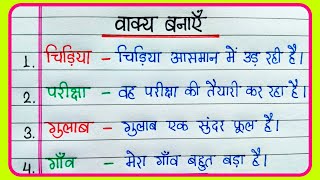 वाक्य बनाएँ
1. चिड़िया – चिड़िया आसमान में उड़ रही है।
2. परीक्षा – वह परीक्षा की तैयारी कर रहा है।
3. गुलाब – गुलाब एक सुंदर फूल है।
4. गाँव – मेरा गाँव बहुत बड़ा है।